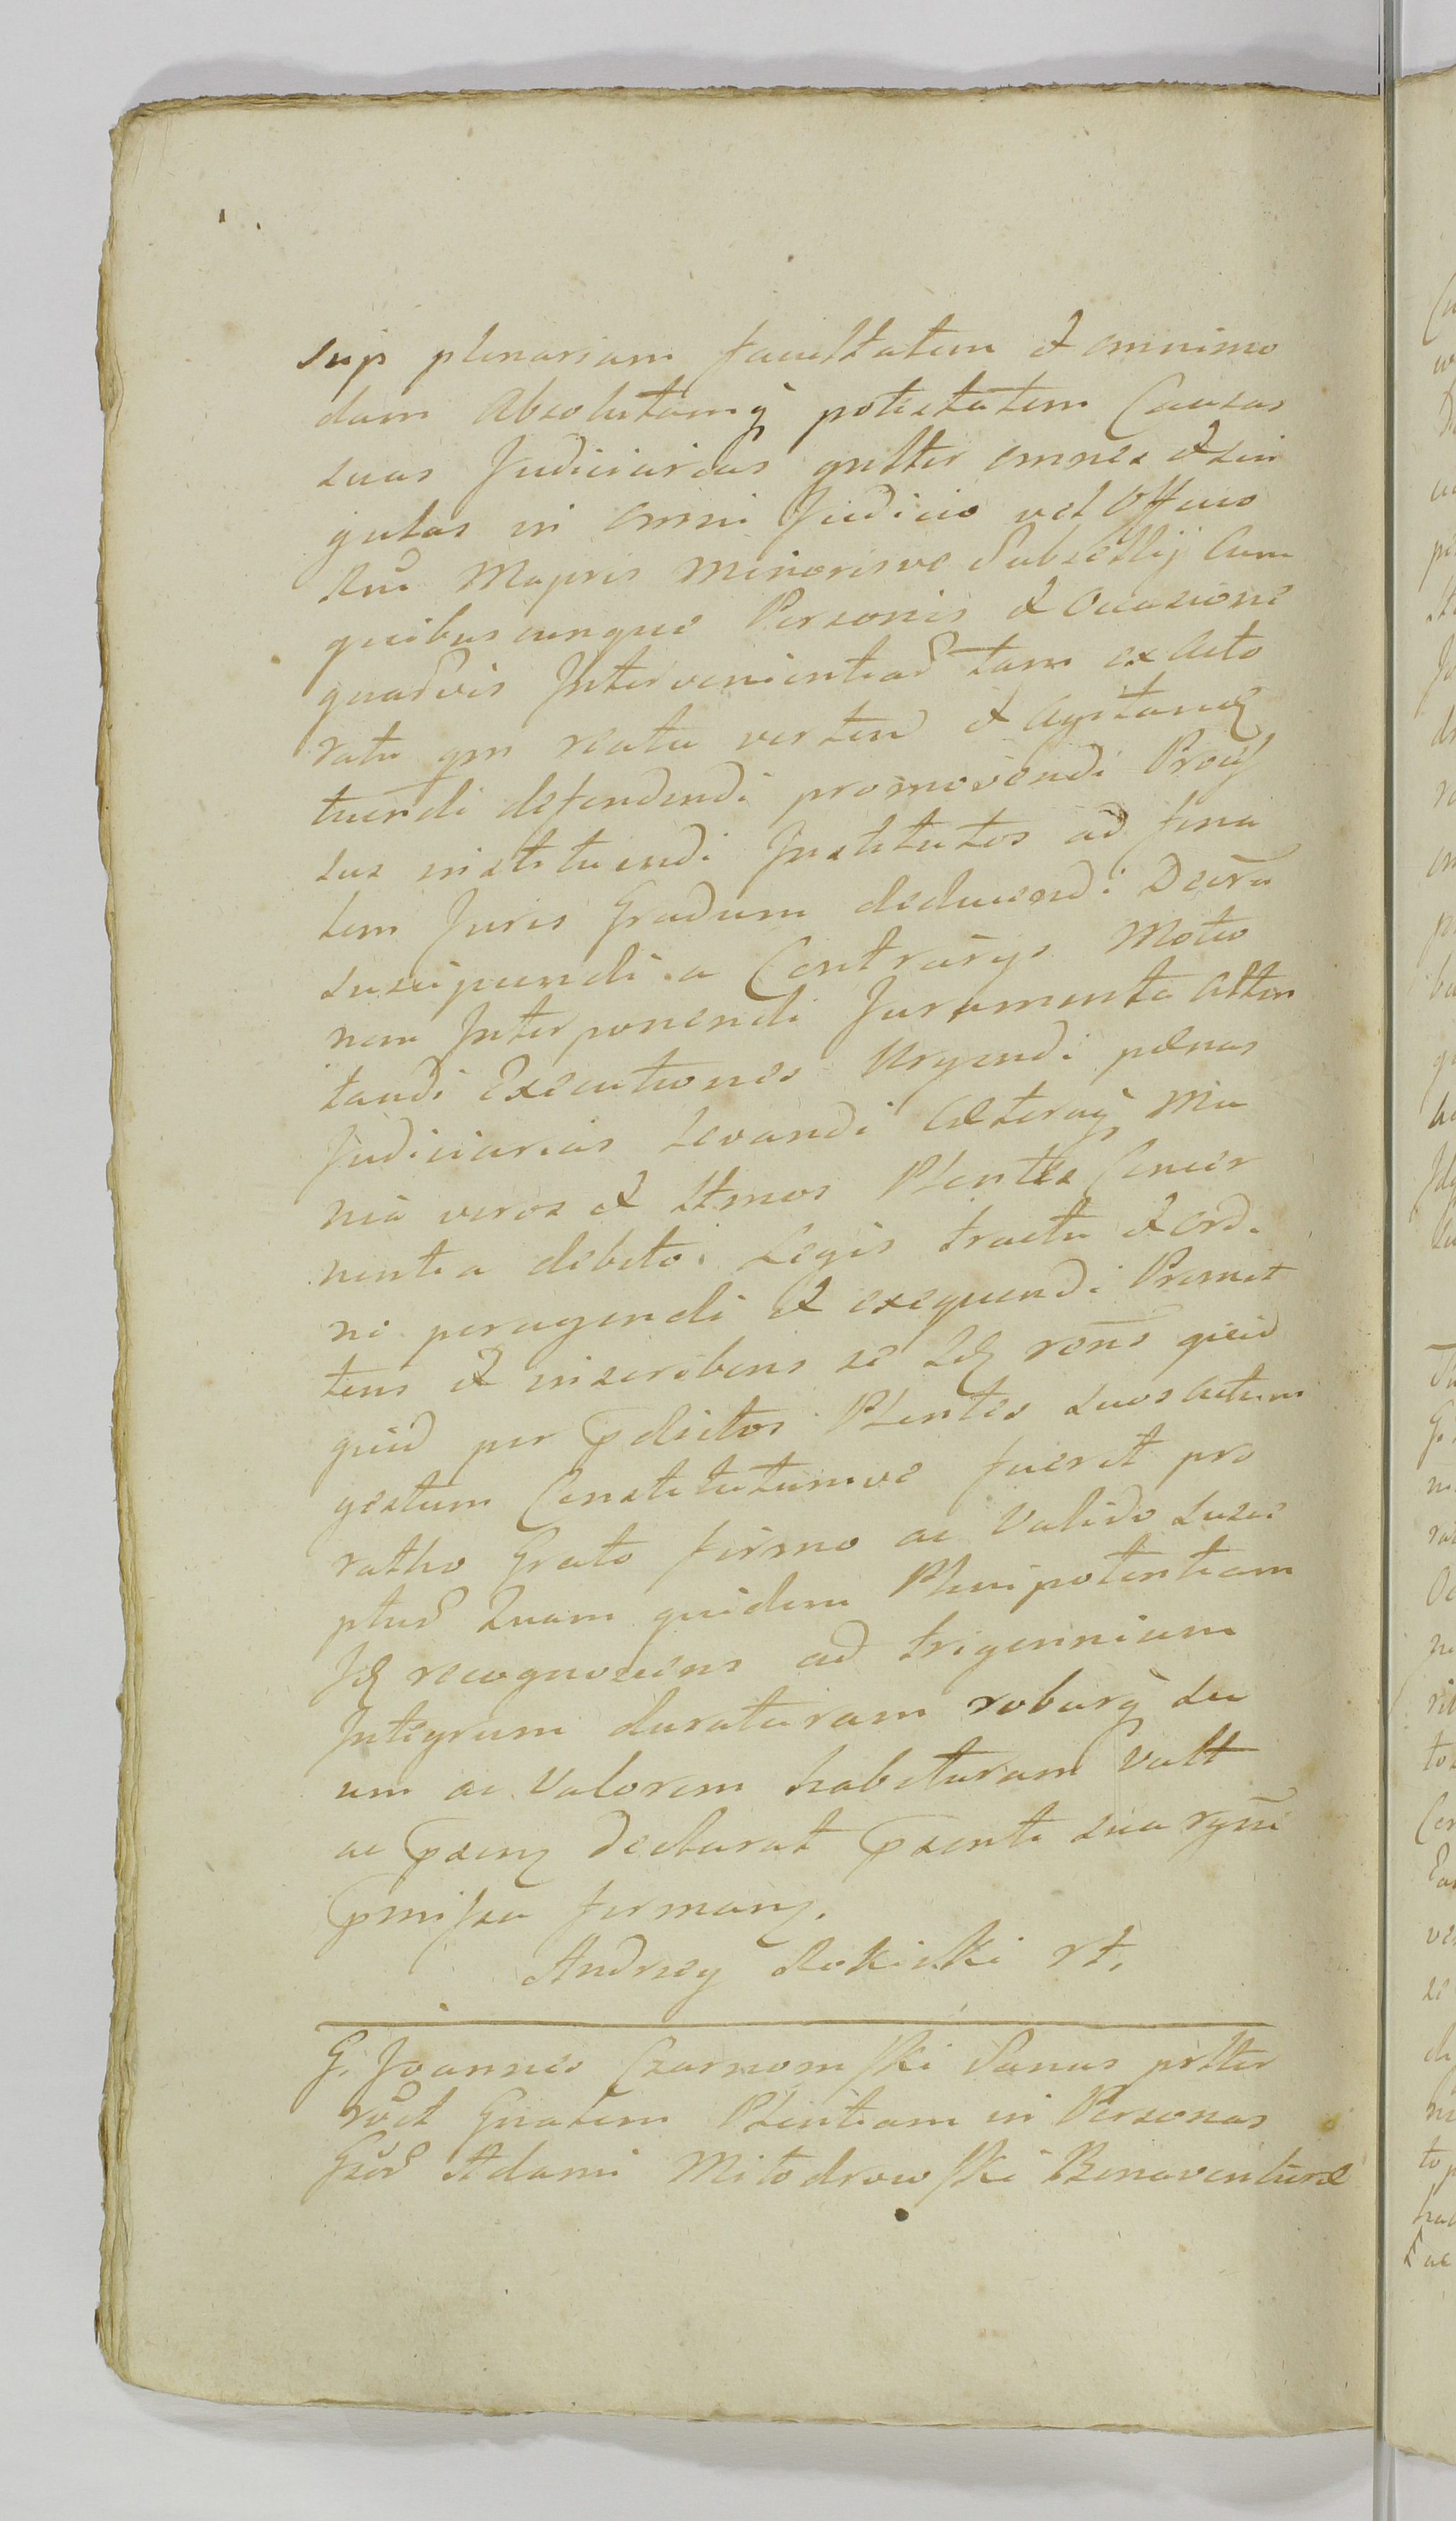 sup plenariam facultatem et omnimo
dam absolutamq potestatem Causas
suas Judiciarias gnlter omnes et sin
gulas in omni Judicio vel Officio
Rni Majoris Minorisve Subsellij Cum
quibuscunque Personis et occasione
quarvis Intervenientiar tam ex acto
ratu qm reatu verten et agitand
tuendi defendendi promovendi Proces
sus instituendi Institutos ad fina
lem Juris Gradum deducendi Decreta
suscipiendi a Contrarijs Motio
nem Interponendi Juramenta atten
tandi Executiones Urgendi pænas
Judiciarias Levandi Cæteraq Mu
nia veros et ltmos Plentes Concer
nentia debito Legis tractu et ordi
ne peragendi et exequendi Promit
tens et inscribens se Idq rone quid
quid per pdictos Plentes suos actum
gestum Constitutumve fuerit pro
ratho Grato firmo ac Valido susce
pturo Quam quidem Plenipotentiam
Idq recognoscens ad trigennium
Integrum duraturam roburq su
um ac Valorem habituram vult
ac declarat pzenti sua
pmissa firmans.
Andrzey Rokicki rt.
G. Joannes Czarnomski Sanus pntter
rōct Gnalem Plentiam in Personas
Gsor Adami Mitodrowski Bonaventuræ